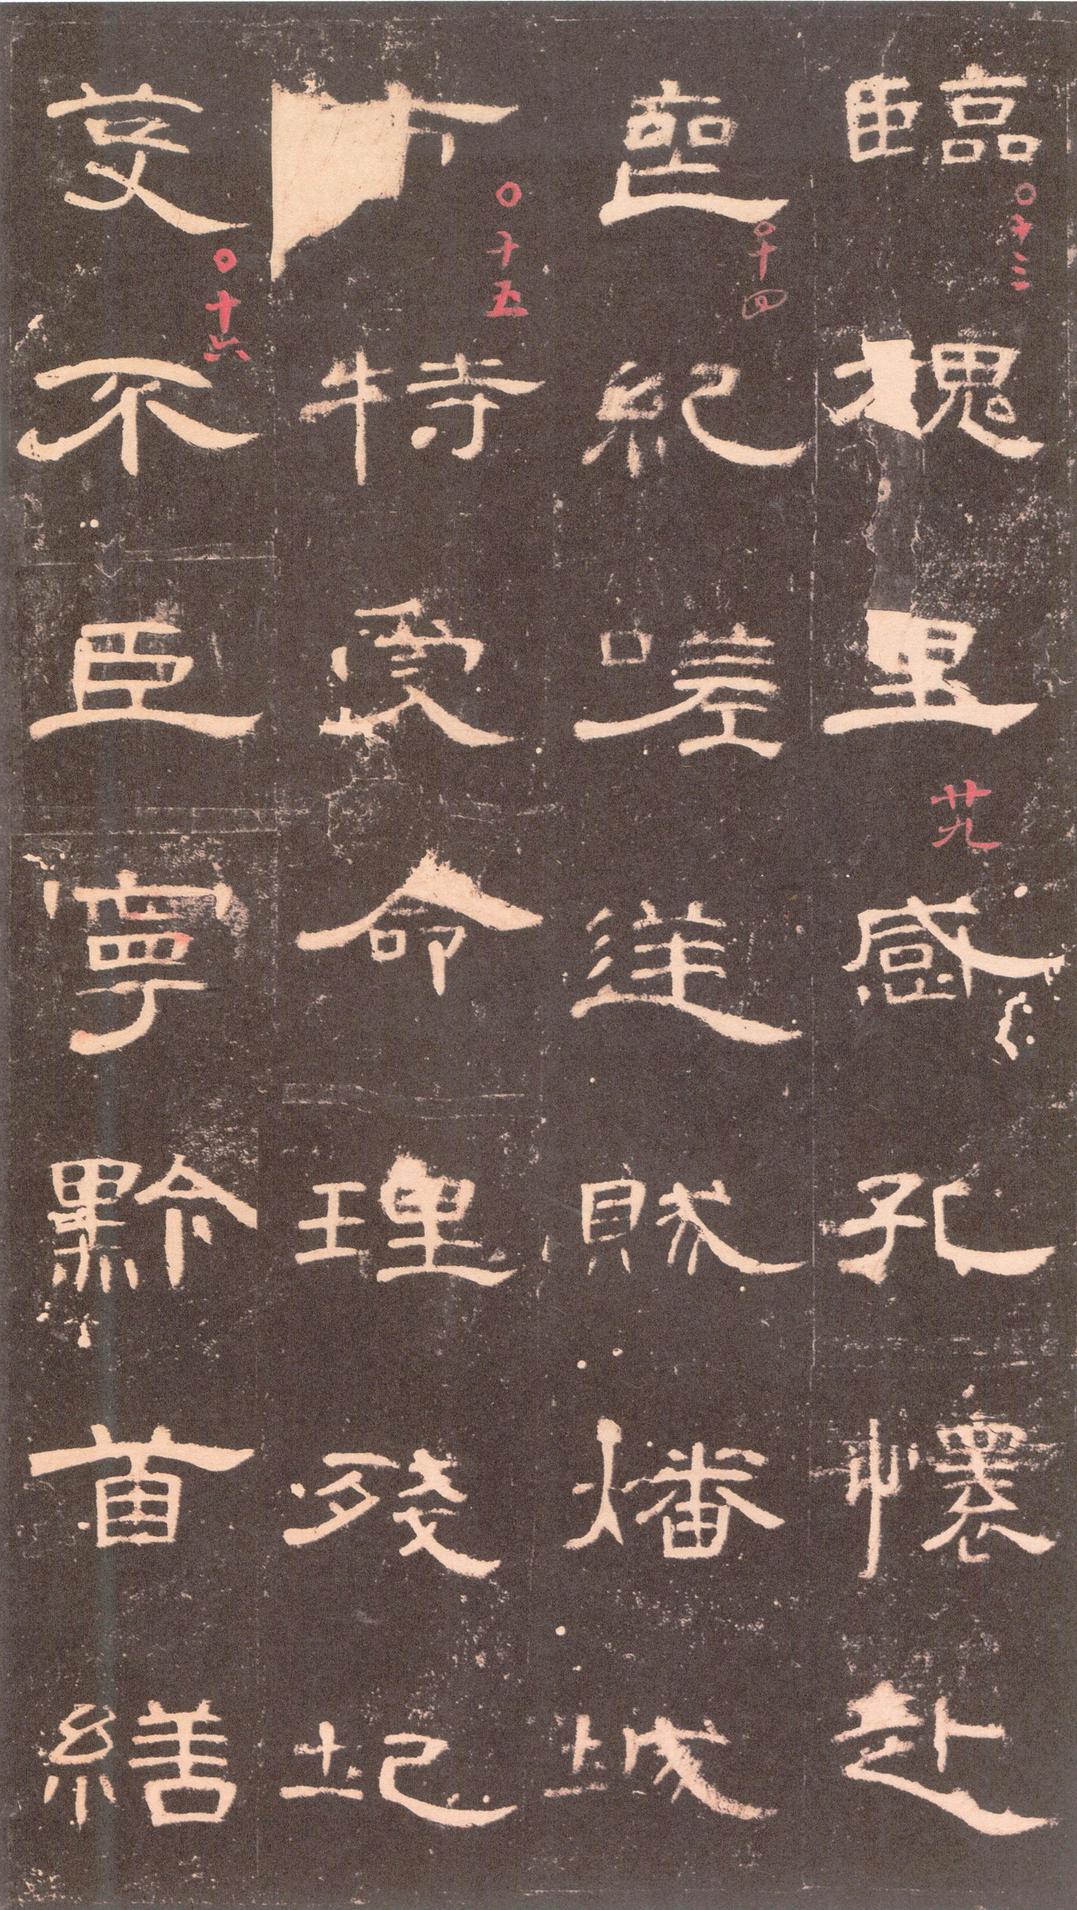 臨槐里感孔懷赴
喪紀嗟逆賊燔城
市特受命理殘圮
芟不臣寧黔首繕
○十三
廿九
○十四
○十五
○十六